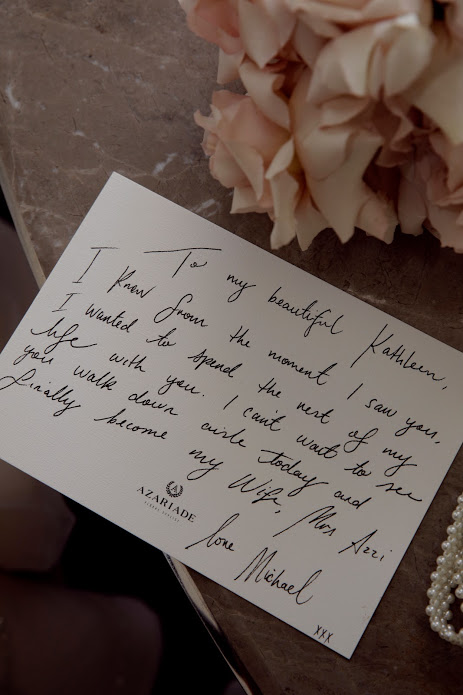 To my beautiful Kathleen,
I knew from the moment I saw you,
I wanted to spend the rest of my
life with you. I can't wait to see
you walk down aisle today and
finally become my Wife, Mrs Azzi
love
Michael
xxx
AZARIADE